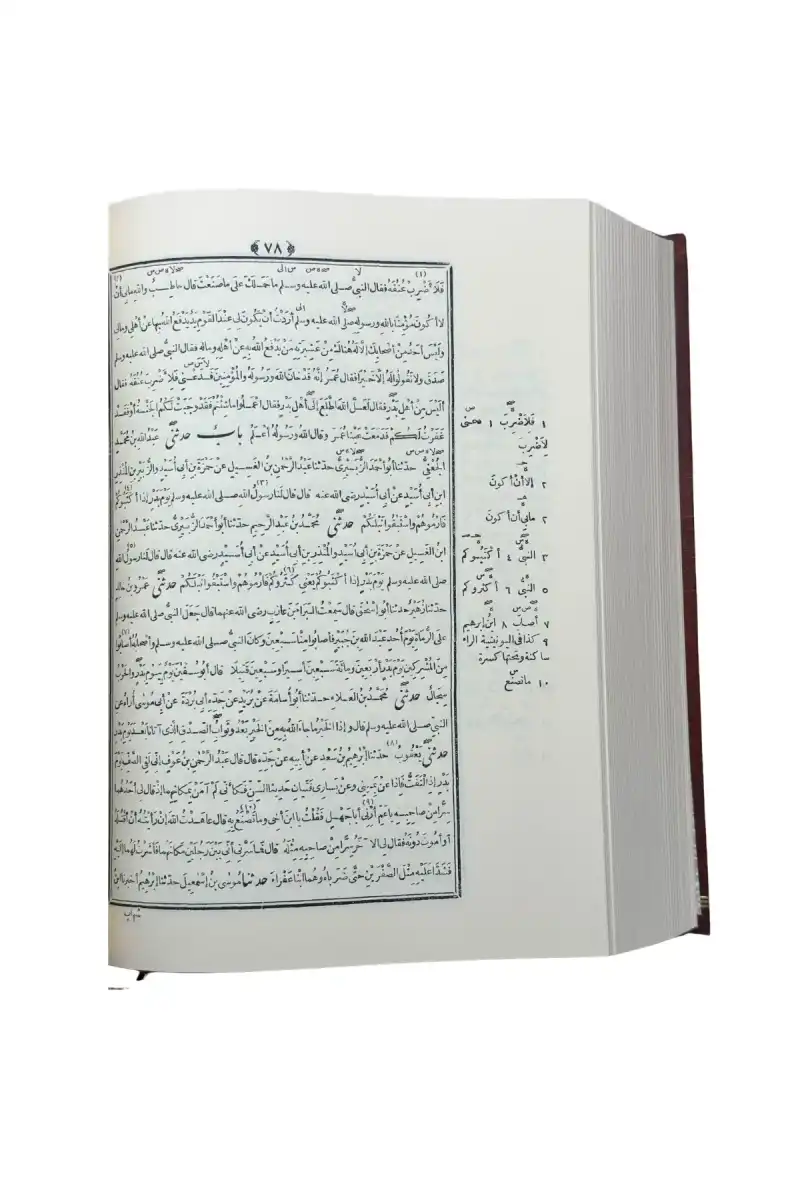 ﴿ ٧٨ ﴾
فَلَأَضْرِبْ عُنُقَهُ فقال النبىُّ صلى الله عليه وسلم ما حَمَلَكَ على ما صَنَعْتَ قال حاطِبٌ والله مابِى أنْ
لا أكونَ مُؤْمِنًا بالله ورسوله صلى الله عليه وسلم أردْتُ أنْ يَكُونَ لِى عِنْدَ القَوْمِ يَدٌ يَدْفَعُ اللهُ بِها عنْ أهْلِى ومالِى
ولَيْسَ أحَدٌ مِنْ أصْحابِكَ إلَّا لَهُ هُناكَ مِنْ عَشِيرَتِهِ مَنْ يَدْفَعُ اللهُ بِهِ عنْ أهْلِهِ ومالِهِ فقال النبىُّ صلى الله عليه وسلم
صَدَقَ ولا تَقُولُوا لَهُ إلَّا خَيْرًا فقال عُمَرُ إنَّهُ قَدْ خانَ اللهَ ورَسُولَهُ والمُؤْمِنِينَ فَدَعْنِى فَلِأَضْرِبَ عُنُقَهُ فقال
ألَيْسَ مِنْ أهْلِ بَدْرٍ فقال لَعَلَّ اللهَ اطَّلَعَ إلَى أهْلِ بَدْرٍ فقال اعْمَلُوا ماشِئْتُمْ فَقَدْ وَجَبَتْ لَكُمُ الجَنَّةُ أوْ فَقَدْ
غَفَرْتُ لَكُمْ فَدَمَعَتْ عَيْنا عُمَرَ وقال اللهُ ورَسُولُهُ أعْلَمُ بابٌ حدثنى عبدُ الله بنُ مُحَمَّدٍ
الجُعْفِىُّ حدثنا أبُو أحْمَدَ الزُّبَيْرِىُّ حدثنا عَبْدُ الرَّحْمٰنِ بنُ الغَسِيلِ عنْ حَمْزَةَ بنِ أبِى أُسَيْدٍ والزُّبَيْرِ بنِ المُنْذِرِ
ابنِ أبِى أُسَيْدٍ عنْ أبِى أُسَيْدٍ رضى الله عنه قال قال لَنا رسولُ الله صلى الله عليه وسلم يَوْمَ بَدْرٍ إذا أكْثَبُوكُمْ
فَارْمُوهُمْ واسْتَبْقُوا نَبْلَكُمْ حدثنى مُحَمَّدُ بنُ عبدِ الرحيمِ حدثنا أبُو أحْمَدَ الزُّبَيْرِىُّ حدثنا عبدُ الرَّحْمٰنِ
ابنُ الغَسِيلِ عنْ حَمْزَةَ بنِ أبِى أُسَيْدٍ والمُنْذِرِ بنِ أبِى أُسَيْدٍ عنْ أبِى أُسَيْدٍ رضى الله عنه قال قال لَنا رسُولُ الله
صلى الله عليه وسلم يَوْمَ بَدْرٍ إذا أكْثَبُوكُمْ يَعْنِى كَثَرُوكُمْ فَارْمُوهُمْ واسْتَبْقُوا نَبْلَكُمْ حدثنى عَمْرُو بنُ خالِدٍ
حدثنا زُهَيْرٌ حدثنا أبُو إسْحٰقَ قال سَمِعْتُ البَراءَ بنَ عازِبٍ رضى الله عنهما قال جَعَلَ النبىُّ صلى الله عليه وسلم
علَى الرُّماةِ يَوْمَ أُحُدٍ عبدَ الله بنَ جُبَيْرٍ فأصابُوا مِنَّا سَبْعِينَ وكان النبىُّ صلى الله عليه وسلم وأصْحابُهُ أصابُوا
مِنَ المُشْرِكِينَ يَوْمَ بَدْرٍ أرْبَعِينَ ومِائَةً سَبْعِينَ أسِيرًا وسَبْعِينَ قَتِيلًا قال أبُو سُفْيٰنَ يَوْمٌ بِيَوْمِ بَدْرٍ والحَرْبُ
سِجالٌ حدثنى مُحَمَّدُ بنُ العَلاءِ حدثنا أبُو أُسامَةَ عنْ بُرَيْدٍ عنْ جَدِّهِ أبِى بُرْدَةَ عنْ أبِى مُوسَى أُراهُ عنِ
النبىِّ صلى الله عليه وسلم قال وإذا الخَيْرُ ما جاءَ اللهُ بِهِ مِنَ الخَيْرِ بَعْدُ وثَوابُ الصِّدْقِ الَّذِى آتانا بَعْدَ يَوْمِ بَدْرٍ
حدثنى يَعْقُوبُ حدثنا إبْرٰهِيمُ بنُ سَعْدٍ عنْ أبِيهِ عنْ جَدِّهِ قال قال عَبْدُ الرَّحْمٰنِ بنُ عَوْفٍ إنِّى لَفِى الصَّفِّ يَوْمَ
بَدْرٍ إذِ الْتَفَتُّ فَإذا عنْ يَمِينِى وعنْ يَسارِى فَتَيانِ حَدِيثا السِّنِّ فَكَأنِّى لَمْ آمَنْ بِمَكانِهِما إذْ قال لِى أحَدُهُما
سِرًّا مِنْ صاحِبِهِ ياعَمِّ أرِنِى أباجَهْلٍ فَقُلْتُ يا ابنَ أخِى وما تَصْنَعُ بِهِ قال عاهَدْتُ اللهَ إنْ رَأيْتُهُ أنْ أقْتُلَهُ
أوْ أمُوتَ دُونَهُ فقال لِى الآخَرُ سِرًّا مِنْ صاحِبِهِ مِثْلَهُ قال فَما سَرَّنِى أنِّى بَيْنَ رَجُلَيْنِ مَكانَهُما فَأشَرْتُ لَهُما إلَيْهِ
فَشَدَّا عَلَيْهِ مِثْلَ الصَّقْرَيْنِ حتَّى ضَرَباهُ وهُما ابْنا عَفْراءَ حدثنا مُوسَى بنُ إسْمٰعِيلَ حدثنا إبْرٰهِيمُ أخبرنا ابنُ
شهاب
١ فَلِأَضْرِبَ ١ فدعنى
لِأَضْرِبَ
٢ إلا أنْ أكونَ
٢ مابِى أن أكونَ
٣ النبىُّ ٤ أكْثَبُوكم
٥ النبىُّ ٦ أكثروكم
٧ أصابَ ٨ ابنُ إبرهيم
٩ كذا فى اليونينية الراء
ساكنة وتحتها كسرة
١٠ ماتصنع